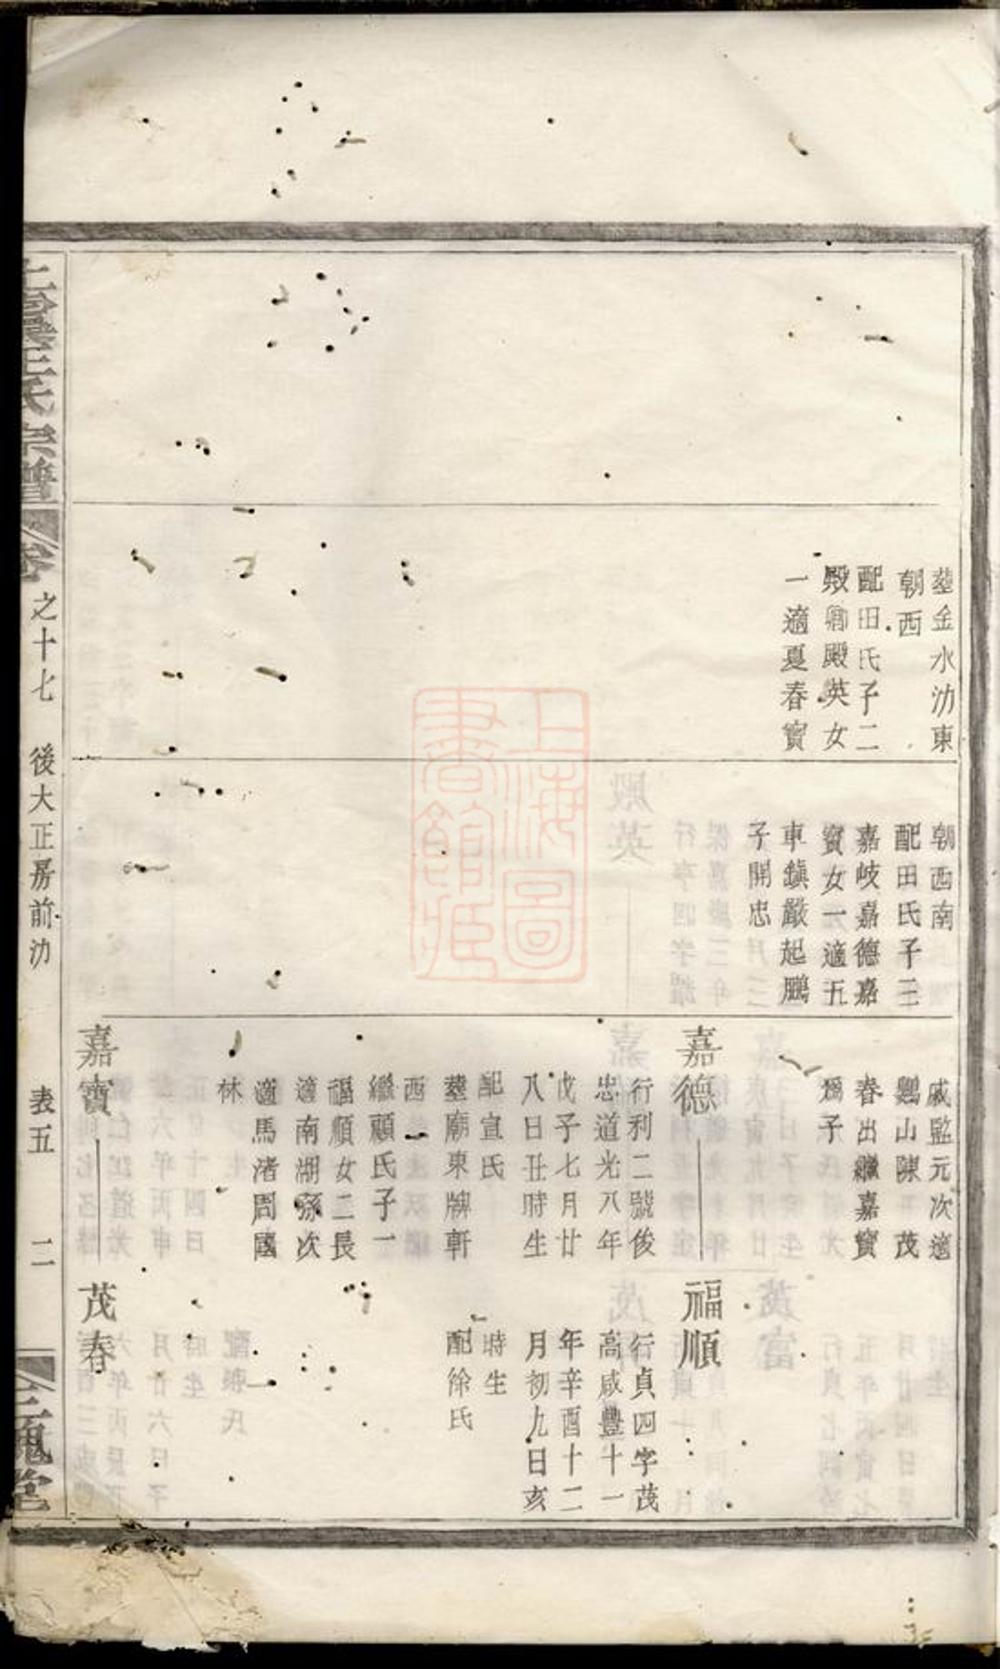 墓金水沕東
朝西
配田氏子二
殿卿殿英女
一適夏春寳
朝西南
配田氏子三
嘉岐嘉德嘉
寳女一適五
車鎮嚴起鵬
子開忠
戚監元次適
鳳山陳茂
春出繼嘉寳
爲子
嘉德
行利二號俊
忠道光八年
戊子七月廿
八日丑時生
配宣氏
墓廟東牌軒
西
繼顧氏子一
福順女二長
適南湖孫次
適馬渚周國
林
福順
行貞四字茂
高咸豐十一
年辛酉十二
月初九日亥
時生
配徐氏
嘉寳
茂春
上虞王氏宗譜
卷之十七
後大正房前沕
表五
二
三槐堂
上海圖書館藏